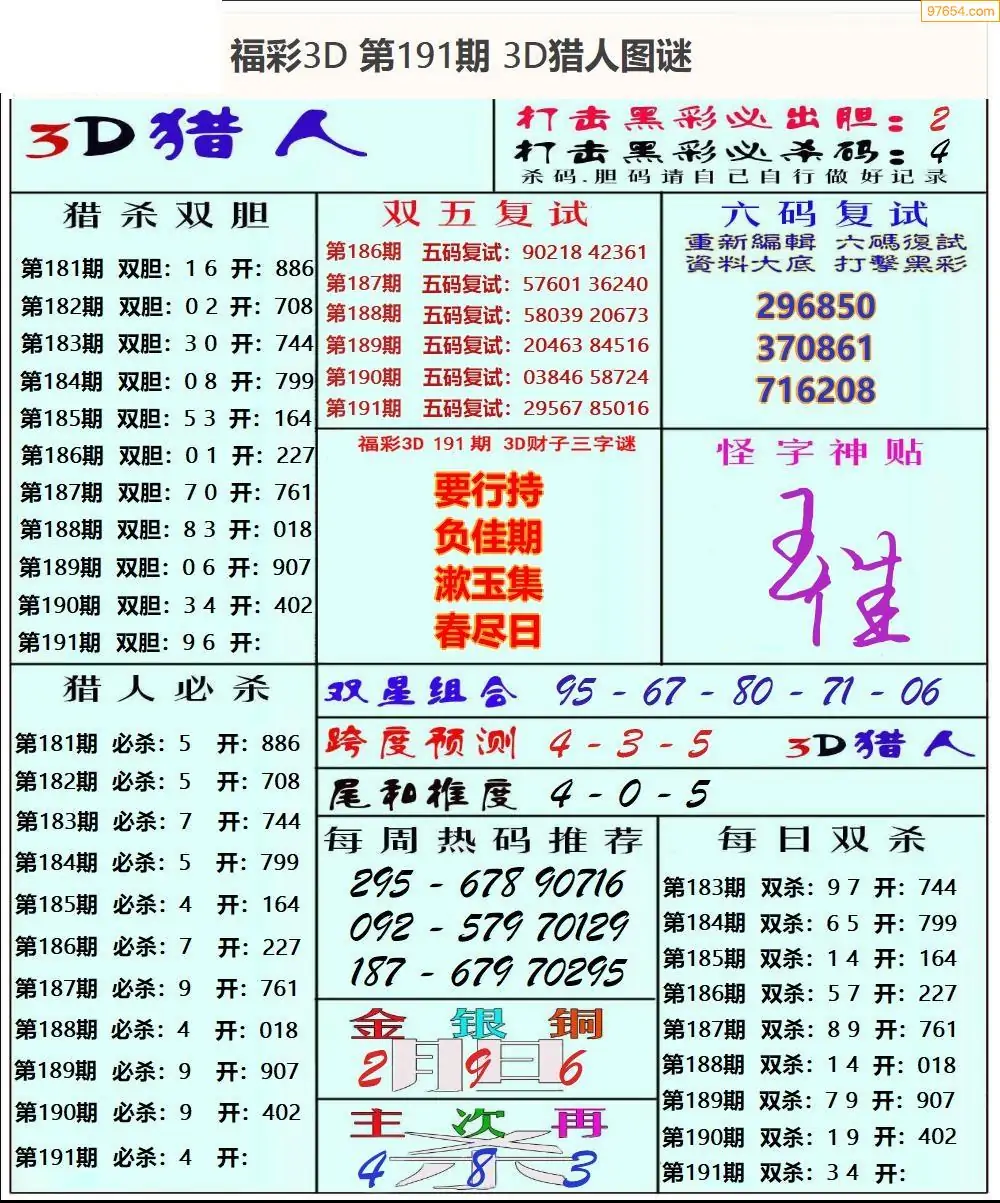 97654.com
福彩3D 第191期 3D猎人图谜
3D猎人
打击黑彩必出胆：2
打击黑彩必杀码：4
杀码.胆码请自己自行做好记录
猎杀双胆
第181期 双胆：1 6 开：886
第182期 双胆：0 2 开：708
第183期 双胆：3 0 开：744
第184期 双胆：0 8 开：799
第185期 双胆：5 3 开：164
第186期 双胆：0 1 开：227
第187期 双胆：7 0 开：761
第188期 双胆：8 3 开：018
第189期 双胆：0 6 开：907
第190期 双胆：3 4 开：402
第191期 双胆：9 6 开：
双五复试
第186期 五码复试：90218 42361
第187期 五码复试：57601 36240
第188期 五码复试：58039 20673
第189期 五码复试：20463 84516
第190期 五码复试：03846 58724
第191期 五码复试：29567 85016
六码复试
重新編輯 六碼復試
資料大底 打擊黑彩
296850
370861
716208
福彩3D 191期 3D财子三字谜
要行持
负佳期
漱玉集
春尽日
怪字神贴
猎人必杀
第181期 必杀：5 开：886
第182期 必杀：5 开：708
第183期 必杀：7 开：744
第184期 必杀：5 开：799
第185期 必杀：4 开：164
第186期 必杀：7 开：227
第187期 必杀：9 开：761
第188期 必杀：4 开：018
第189期 必杀：9 开：907
第190期 必杀：9 开：402
第191期 必杀：4 开：
双星组合 95 - 67 - 80 - 71 - 06
跨度预测 4 - 3 - 5 3D猎人
尾和推度 4 - 0 - 5
每周热码推荐
295 - 678 90716
092 - 579 70129
187 - 679 70295
金银铜
胆
2 9 6
主次再
杀
4 8 3
每日双杀
第183期 双杀：9 7 开：744
第184期 双杀：6 5 开：799
第185期 双杀：1 4 开：164
第186期 双杀：5 7 开：227
第187期 双杀：8 9 开：761
第188期 双杀：1 4 开：018
第189期 双杀：7 9 开：907
第190期 双杀：1 9 开：402
第191期 双杀：3 4 开：